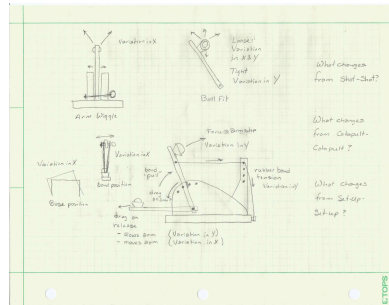 Variation in X
Arm Wiggle
Loose:
Variation
in X & Y
Tight
Variation in Y
Ball Fit
What changes
from Shot-Shot?
What changes
from Catapult-
Catapult?
What changes
from Set-up-
Set-up?
Variation in X
Base position
Variation in X
Band position
Variation in Y
band
pull
drag
on arm
rubber band
tension
Variation in Y
drag on
release
- slows arm (Variation in Y)
- moves arm (Variation in X)
TOPS